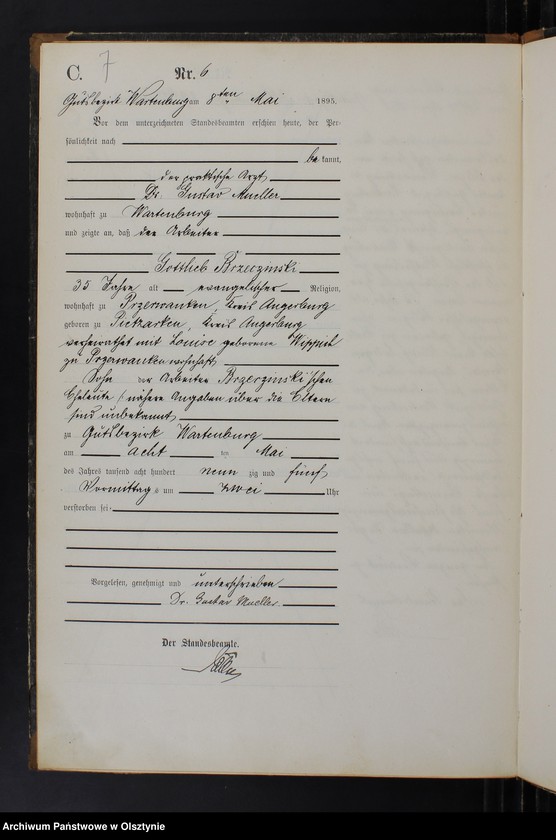 C. 7 Nr. 6
Gutsbezirk Wartenburg am 8ten Mai 1895.
Vor dem unterzeichneten Standesbeamten erschien heute, der Per-
sönlichkeit nach
be kannt,
der praktische Arzt
Dr. Gustav Mueller
wohnhaft zu Wartenburg
und zeigte an, daß der Arbeiter
Gottlieb Brzerzinski
35 Jahre alt evangelischer Religion,
wohnhaft zu Przerwanken, Kreis Angerburg
geboren zu Pietzarken, Kreis Angerburg
verheirathet mit Louise geborene
zu Przerwanken wohnhaft,
Sohn der Arbeiter Brzerzinski'schen
Eheleute (nähere Angaben über die Eltern
sind unbekannt
zu Gutsbezirk Wartenburg
am acht ten Mai
des Jahres tausend acht hundert neun zig und fünf
Vormittags um zwei Uhr
verstorben sei.
Vorgelesen, genehmigt und unterschrieben
Dr. Gustav Mueller.
Der Standesbeamte.
Archiwum Państwowe w Olsztynie